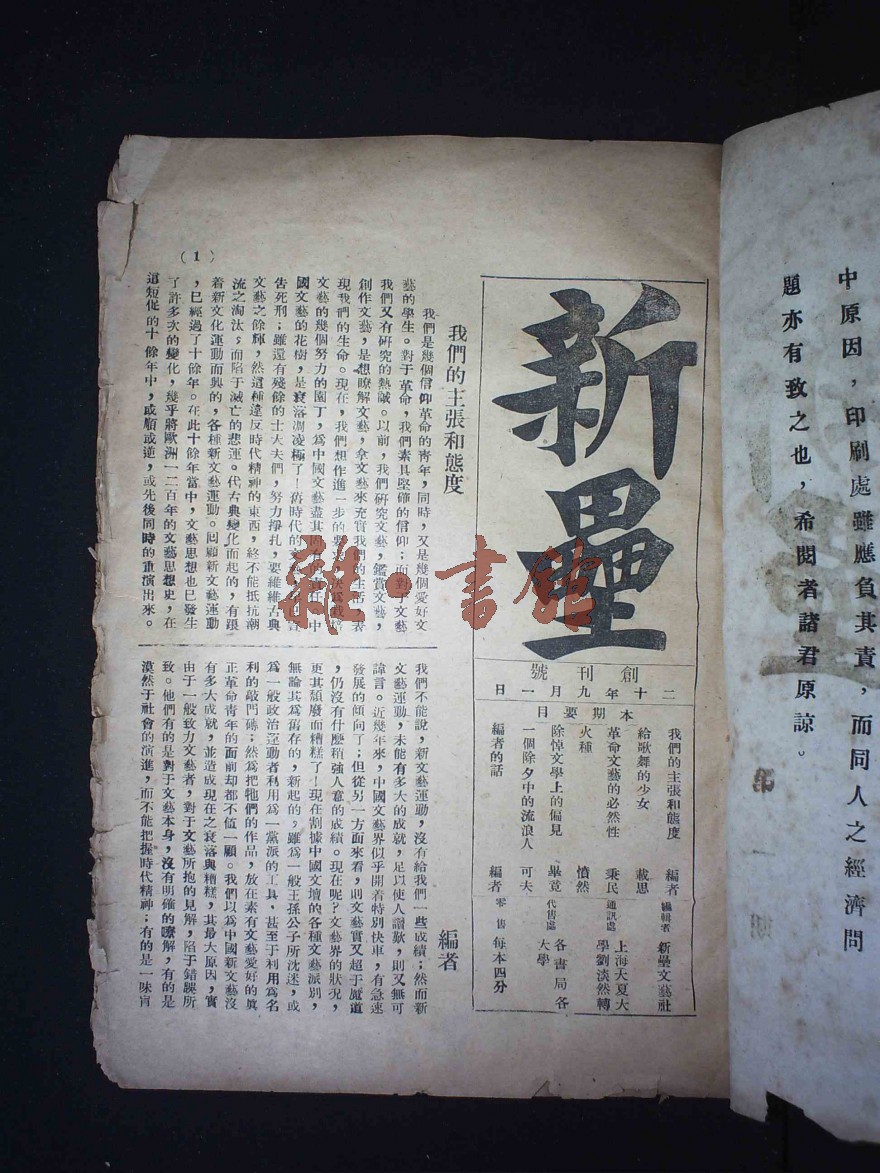 中原因，印刷處雖應負其責，而同人之經濟問
題亦有致之也，希閱者諸君原諒。
新壘
創刊號
二十年九月一日
本期要目
我們的主張和態度　編者
給歌舞的少女　載思
革命文藝的必然性　秉民
火種　憤然
除悼文學上的偏見　畢竟
一個除夕中的流浪人　可夫
編者的話　編者
編輯者　新壘文藝社
通訊處　上海大夏大
學劉淡然轉
代售處　各書局各
大學
零售　每本四分
（1）
我們的主張和態度
編者
我們是幾個信仰革命的靑年，同時，又是幾個愛好文
藝的學生。對于革命，我們素具堅確的信仰；而對于文藝
我們又有研究的熱誠。以前，我們研究文藝，鑑賞文藝，
創作文藝，是想瞭解文藝，拿文藝來充實我們的生活，表
現我們的生命。現在，我們想作進一步的
文藝的幾個努力的園丁，爲中國文藝盡其固有的責任。中
國文藝的花樹，是衰落凋凌極了！舊時代的文
告死刑；雖還有殘餘的士大夫們，努力掙扎，要維維古典
文藝之餘輝，然這種違反時代精神的東西，終不能抵抗潮
流之淘汰，而陷于滅亡的悲運。代古典變化而起的，有跟
着新文化運動而興的，各種新文藝運動。回顧新文藝運動
，已經過了十餘年。在此十餘年當中，文藝思想也已發生
了許多次的變化，幾乎將歐洲一二百年的文藝思想史，在
這短促的十餘年中，或順或逆，或先後同時的重演出來。
我們不能說，新文藝運動，沒有給我們一些成績；然而新
文藝運動，未能有多大的成就，足以使人讚歎，則又無可
諱言。近幾年來，中國文藝界似乎開着特別快車，有急速
發展的傾向了；但從另一方面來看，則文藝實又超于魔道
，仍沒有什麽稍強人意的成績。現在呢？文藝界的狀況，
更其頹廢而糟糕了！現在割據中國文壇的各種文藝派別，
無論其爲舊存的，新起的，雖爲一般王孫公子所沈迷，或
爲一般政治運動者利用爲一黨派的工具，甚至于利用爲名
利的敲門磚；然爲把牠們的作品，放在素有文藝愛好的眞
正革命靑年的面前却都不値一顧。我們以爲中國新文藝沒
有多大成就，並造成現在之衰落與糟糕，其最大原因，實
由于一般致力文藝者，對于文藝所抱的見解，陷于錯誤所
致。他們有的是對于文藝本身，沒有明確的瞭解，有的是
漠然于社會的演進，而不能把握時代精神；有的是一味盲
雜書館